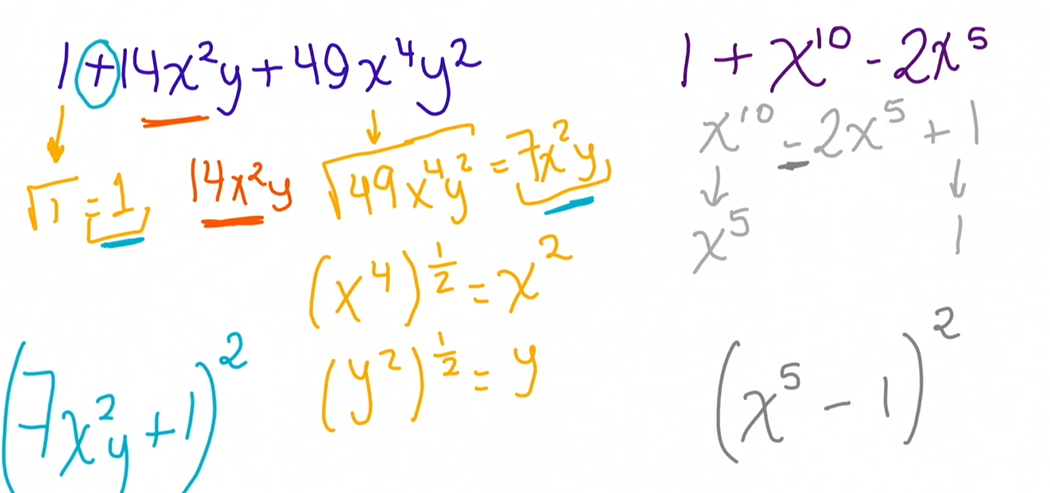 1 + 14x²y + 49x⁴y²
√1 = 1
14x²y
√49x⁴y² = 7x²y
(x⁴)^½ = x²
(y²)^½ = y
(7x²y + 1)²
1 + x¹⁰ - 2x⁵
x¹⁰ - 2x⁵ + 1
x⁵ 1
(x⁵ - 1)²